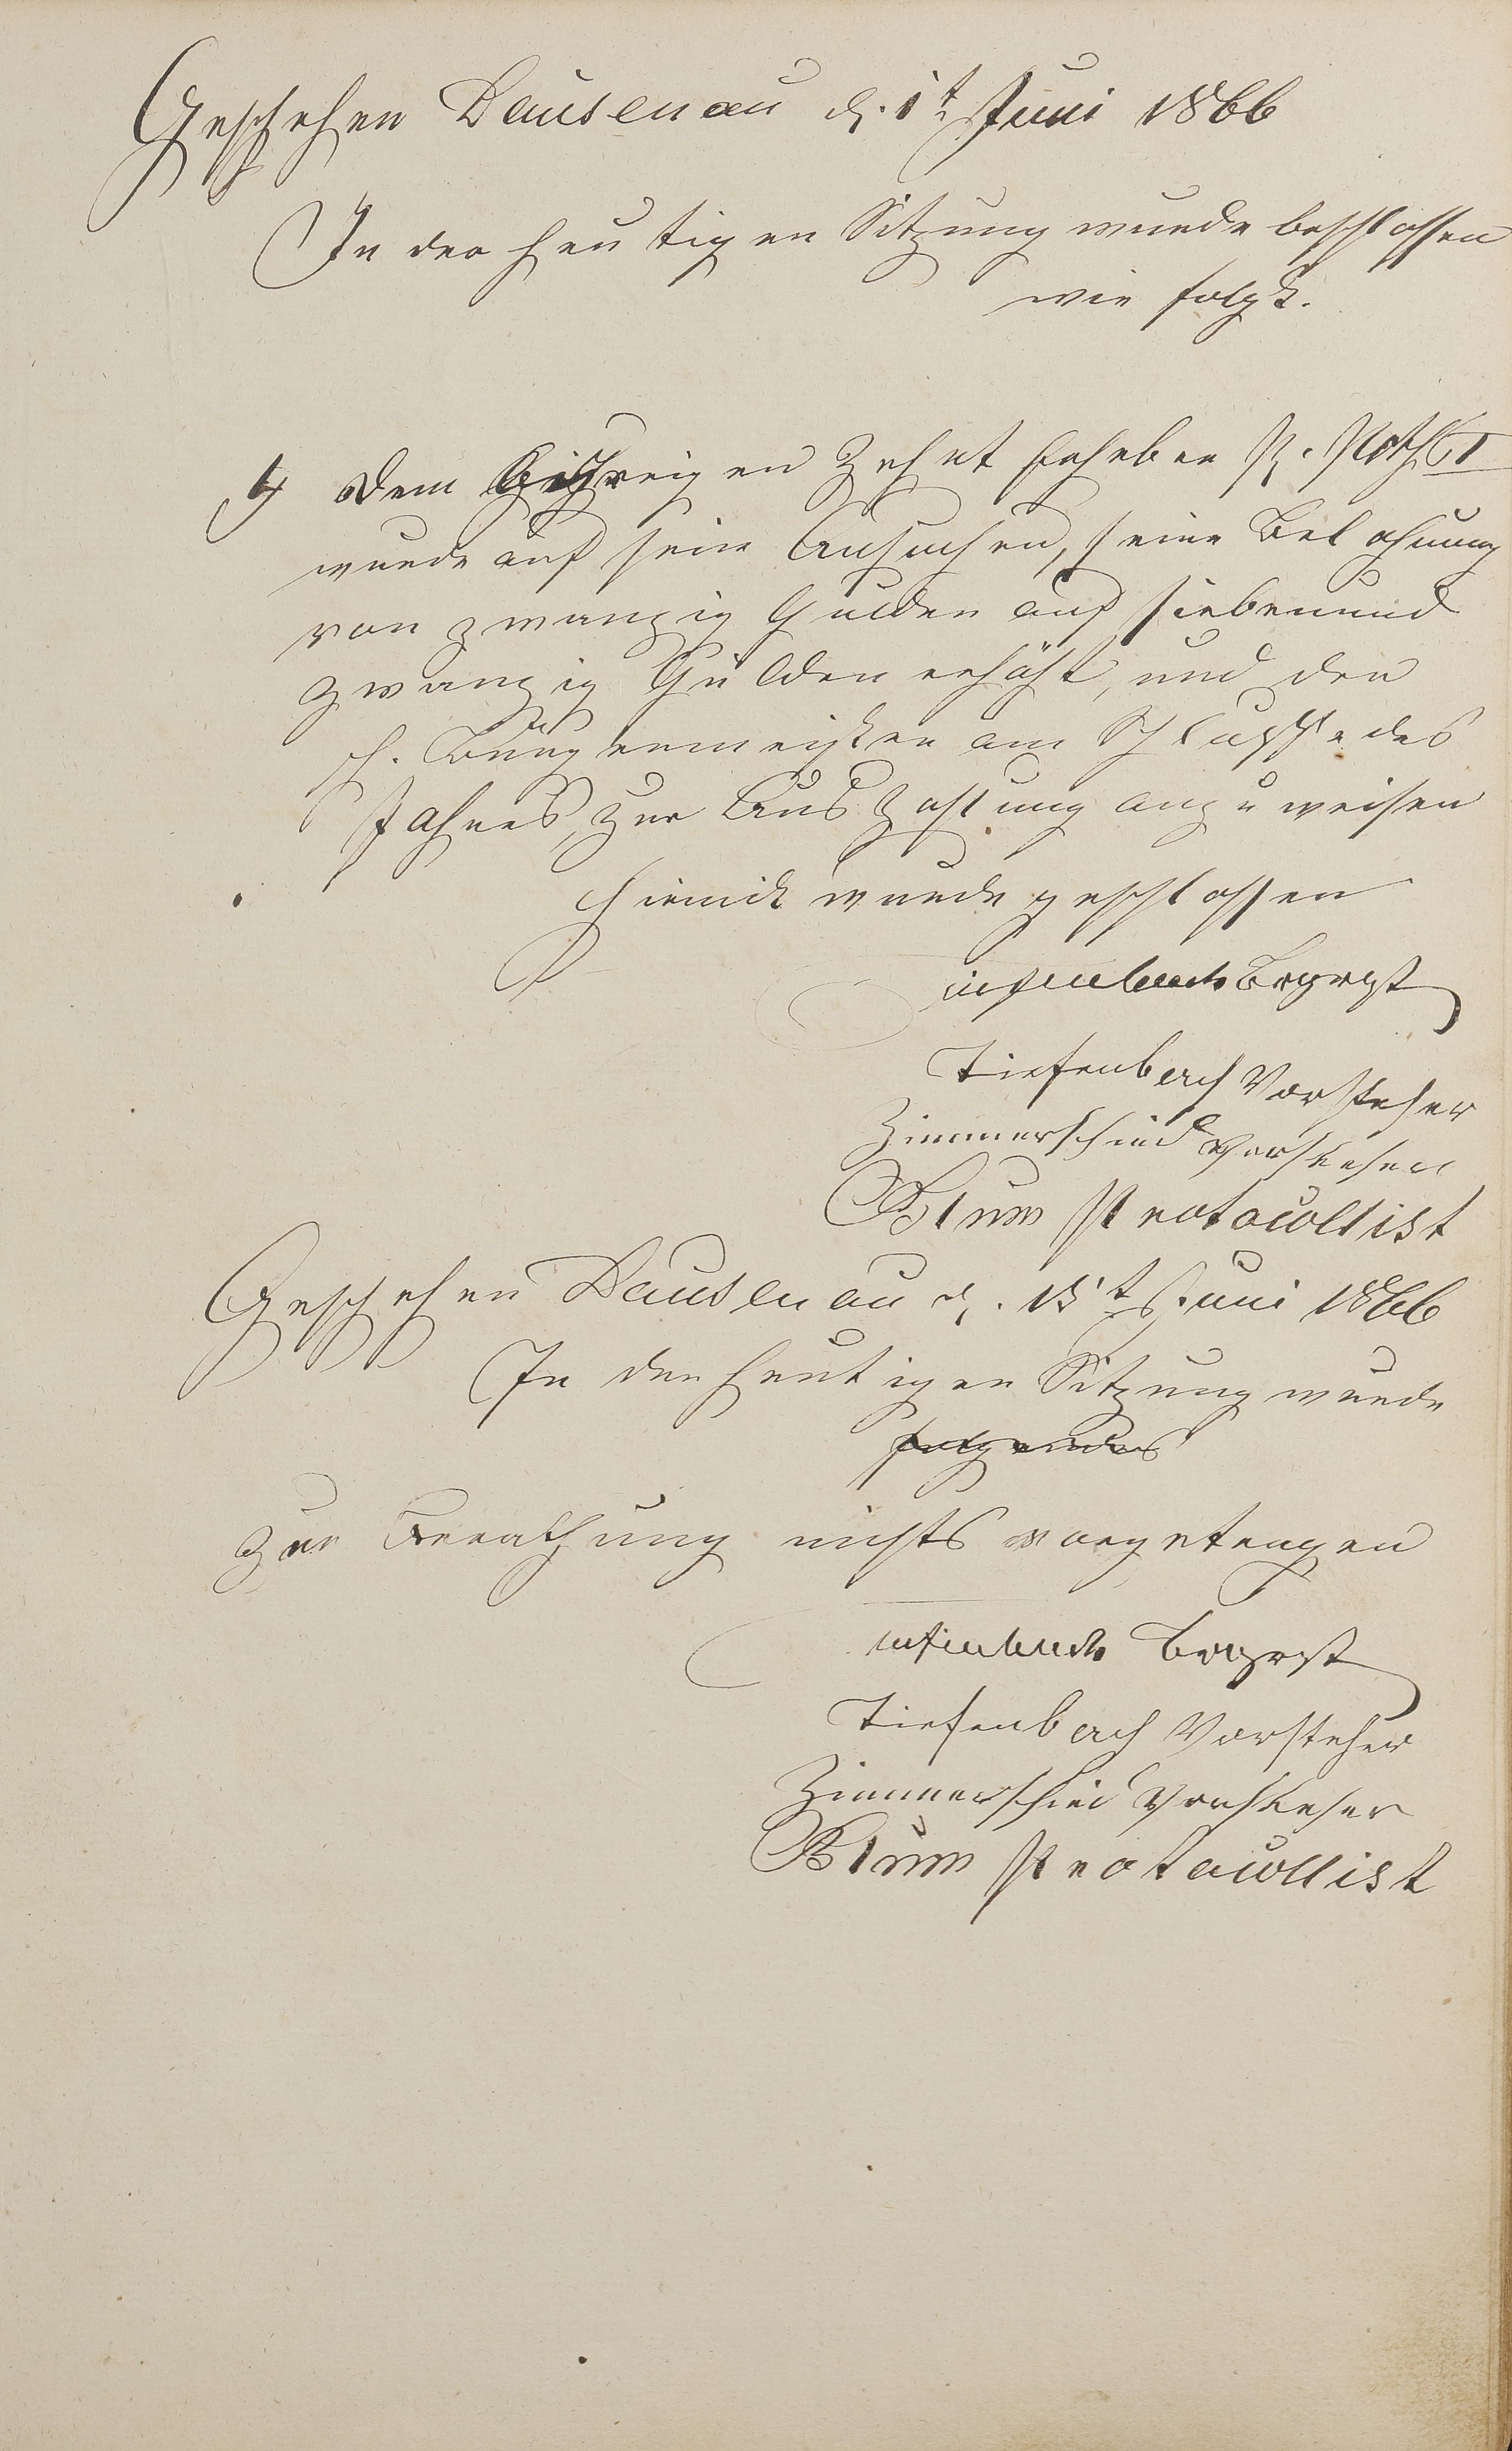 Geschehen Dausenau d. 1t Juni 1866
In der heutigen Sitzung wurde beschlossen
wie folgt.
1) Dem bisherigen Zehnt Erheber P. Noth I
wurde auf sein Ansuchen, seine Belohnung
von zwanzig Gulden auf siebenund
zwanzig Gulden erhöht, und den
H. Bürgermeister am Schlusse des
Jahres, zur Auszahlung anzuweisen
Hiemit wurde geschlossen
Tiefenbach Bgrmst
Tiefenbach Vorsteher
Zimmerschied Vorsteher
Blum Protocollist
Geschehen Dausenau d. 15t Juni 1866
In der heutigen Sitzung wurde
folgendes
zur Berathung nichts vorgetragen
Tiefenbach Bgrmst
Tiefenbach Vorsteher
Zimmerschied Vorsteher
Blum Protocollist